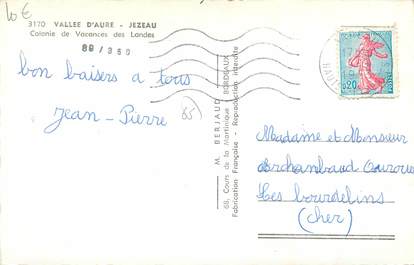 10€
3170 VALLEE D'AURE - JEZEAU
Colonie de Vacances des Landes
89/360
bon baisers a tous
Jean-Pierre
65
M. BERJAUD
68, Cours de la Martinique BORDEAUX
Fabrication Française - Reproduction interdite
0,20
Madame et Monsieur
Archambaud
Les bourdelins
(cher)